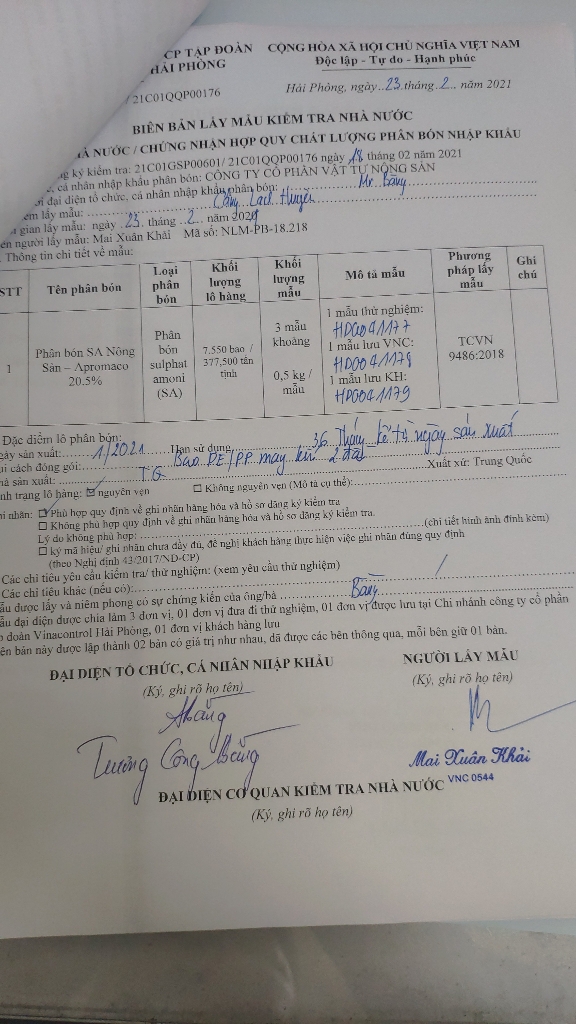 CP TẬP ĐOÀN CỘNG HÒA XÃ HỘI CHỦ NGHĨA VIỆT NAM
HẢI PHÒNG Độc lập - Tự do - Hạnh phúc
/ 21C01QQP00176 Hải Phòng, ngày..23.tháng..2... năm 2021
BIÊN BẢN LẤY MẪU KIỂM TRA NHÀ NƯỚC
NHÀ NƯỚC / CHỨNG NHẬN HỢP QUY CHẤT LƯỢNG PHÂN BÓN NHẬP KHẨU
ký kiểm tra: 21C01GSP00601/ 21C01QQP00176 ngày 18 tháng 02 năm 2021
, cá nhân nhập khẩu phân bón: CÔNG TY CỔ PHẦN VẬT TƯ NÔNG SẢN
đại diện tổ chức, cá nhân nhập khẩu phân bón: Mr. Bằng
lấy mẫu: Cảng Lạch Huyện
gian lấy mẫu: ngày 23 tháng 2 năm 2021
người lấy mẫu: Mai Xuân Khải Mã số: NLM-PB-18.218
Thông tin chi tiết về mẫu:
STT Tên phân bón Loại phân bón Khối lượng lô hàng Khối lượng mẫu Mô tả mẫu Phương pháp lấy mẫu Ghi chú
1 Phân bón SA Nông Sản – Apromaco 20.5% Phân bón sulphat amoni (SA) 7,550 bao / 377,500 tấn tịnh 3 mẫu khoảng 0,5 kg / mẫu 1 mẫu thử nghiệm: HDG041177 1 mẫu lưu VNC: HDG041178 1 mẫu lưu KH: HDG041179 TCVN 9486:2018
Đặc điểm lô phân bón:
sản xuất: 1/2021 Hạn sử dụng 36 Tháng kể từ ngày sản xuất
cách đóng gói: Bao PE/PP may kín 2 đầu
sản xuất: TQ Xuất xứ: Trung Quốc
trạng lô hàng: ☑ nguyên vẹn ☐ Không nguyên vẹn (Mô tả cụ thể):
nhãn: ☑ Phù hợp quy định về ghi nhãn hàng hóa và hồ sơ đăng ký kiểm tra
☐ Không phù hợp quy định về ghi nhãn hàng hóa và hồ sơ đăng ký kiểm tra.
Lý do không phù hợp: (chi tiết hình ảnh đính kèm)
☐ ký mã hiệu/ ghi nhãn chưa đầy đủ, đề nghị khách hàng thực hiện việc ghi nhãn đúng quy định
(theo Nghị định 43/2017/NĐ-CP)
Các chỉ tiêu yêu cầu kiểm tra/ thử nghiệm: (xem yêu cầu thử nghiệm)
Các chỉ tiêu khác (nếu có): /
được lấy và niêm phong có sự chứng kiến của ông/bà Bằng
đại diện được chia làm 3 đơn vị, 01 đơn vị đưa đi thử nghiệm, 01 đơn vị được lưu tại Chi nhánh công ty cổ phần
đoàn Vinacontrol Hải Phòng, 01 đơn vị khách hàng lưu
bản này được lập thành 02 bản có giá trị như nhau, đã được các bên thông qua, mỗi bên giữ 01 bản.
ĐẠI DIỆN TỔ CHỨC, CÁ NHÂN NHẬP KHẨU NGƯỜI LẤY MẪU
(Ký, ghi rõ họ tên) (Ký, ghi rõ họ tên)
Trương Công Bằng Mai Xuân Khải
VNC 0544
ĐẠI DIỆN CƠ QUAN KIỂM TRA NHÀ NƯỚC
(Ký, ghi rõ họ tên)